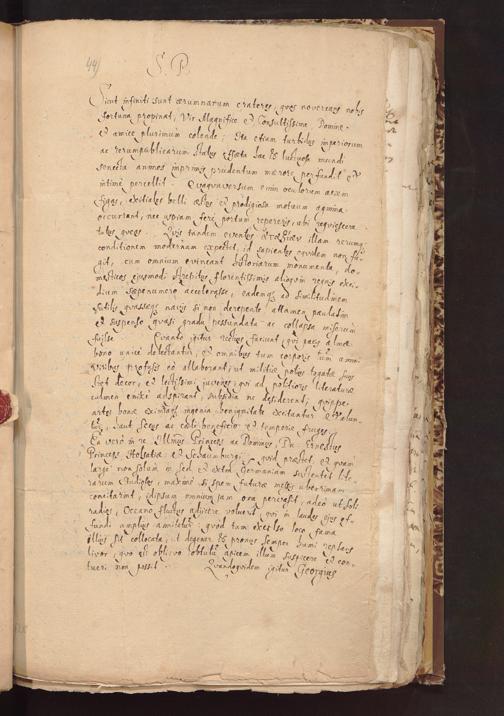 44
S. P.
Sicut infiniti sunt ærumnarum crateres, quos novercans nobis
fortuna propinat, Vir Magnifice et Consultissime, Domine
et amice plurimum colende; Ita etiam turbidus imperiorum
ac rerumpublicarum status effœta hac et luctuosa mundi
senecta animos inprimis prudentum mærore perfundit et
intime percellit. Quaquaversum enim oculorum aciem
figas, exitiales belli æstus et prodigiosa motuum agmina
occurrunt, nec uspiam fere portum repereris, ubi requiescere
tutus queas. Quis tandem eventus illam rerum
conditionem modernam expectet, id sapientes quidem non
fugit, cum omnium evincant historiarum monumenta, do-
mesticos ejusmodi strepitus florentissimis alioquin regnis exci-
dium sæpenumero accelerasse, eademq ad similitudinem
futilis quassæq navis si non derepente attamen paulatim
et suspenso quasi gradu pessundata ac collapsa misere
fuisse. Quanto igitur rectius faciunt, qui pacis almæ
bono unice delectantur, et omnibus tum corporis tum animi
viribus eo allaborant, ut militiæ potius togatæ suus
stet decor, et lectissimi juvenes, qui ad politioris literaturæ
culmen enixe adspirant, subsidia ne desiderent; quippe
artes bonæ eximiaq ingenia benignitate excitantur et alun-
tur, haud secus ac cœli beneficio et temporis fruges.
Ea vero in re Illmus Princeps ac Dominus, Dn. Ernestus
Princeps Holsatiæ et Schaumburgi, quid præstet, et quam
large non solum in sed et extra Germaniam sustentet lite-
rarum studiosos, maxime si spem futuræ messis uberrimam
concitarint, idipsum omnium jam ora percrepat, adeo ut soli
radios, Oceano fluctus adjicere voluerit, qui in laudes ejus ef-
fundi amplius annitetur, quod tam excelso loco fama
illius sit collocata, ut degener et pronus semper humi replans
livor, quo et oblivio obtutu apicem illum suspicere et con-
tueri non possit. Quandoquidem igitur Georgius